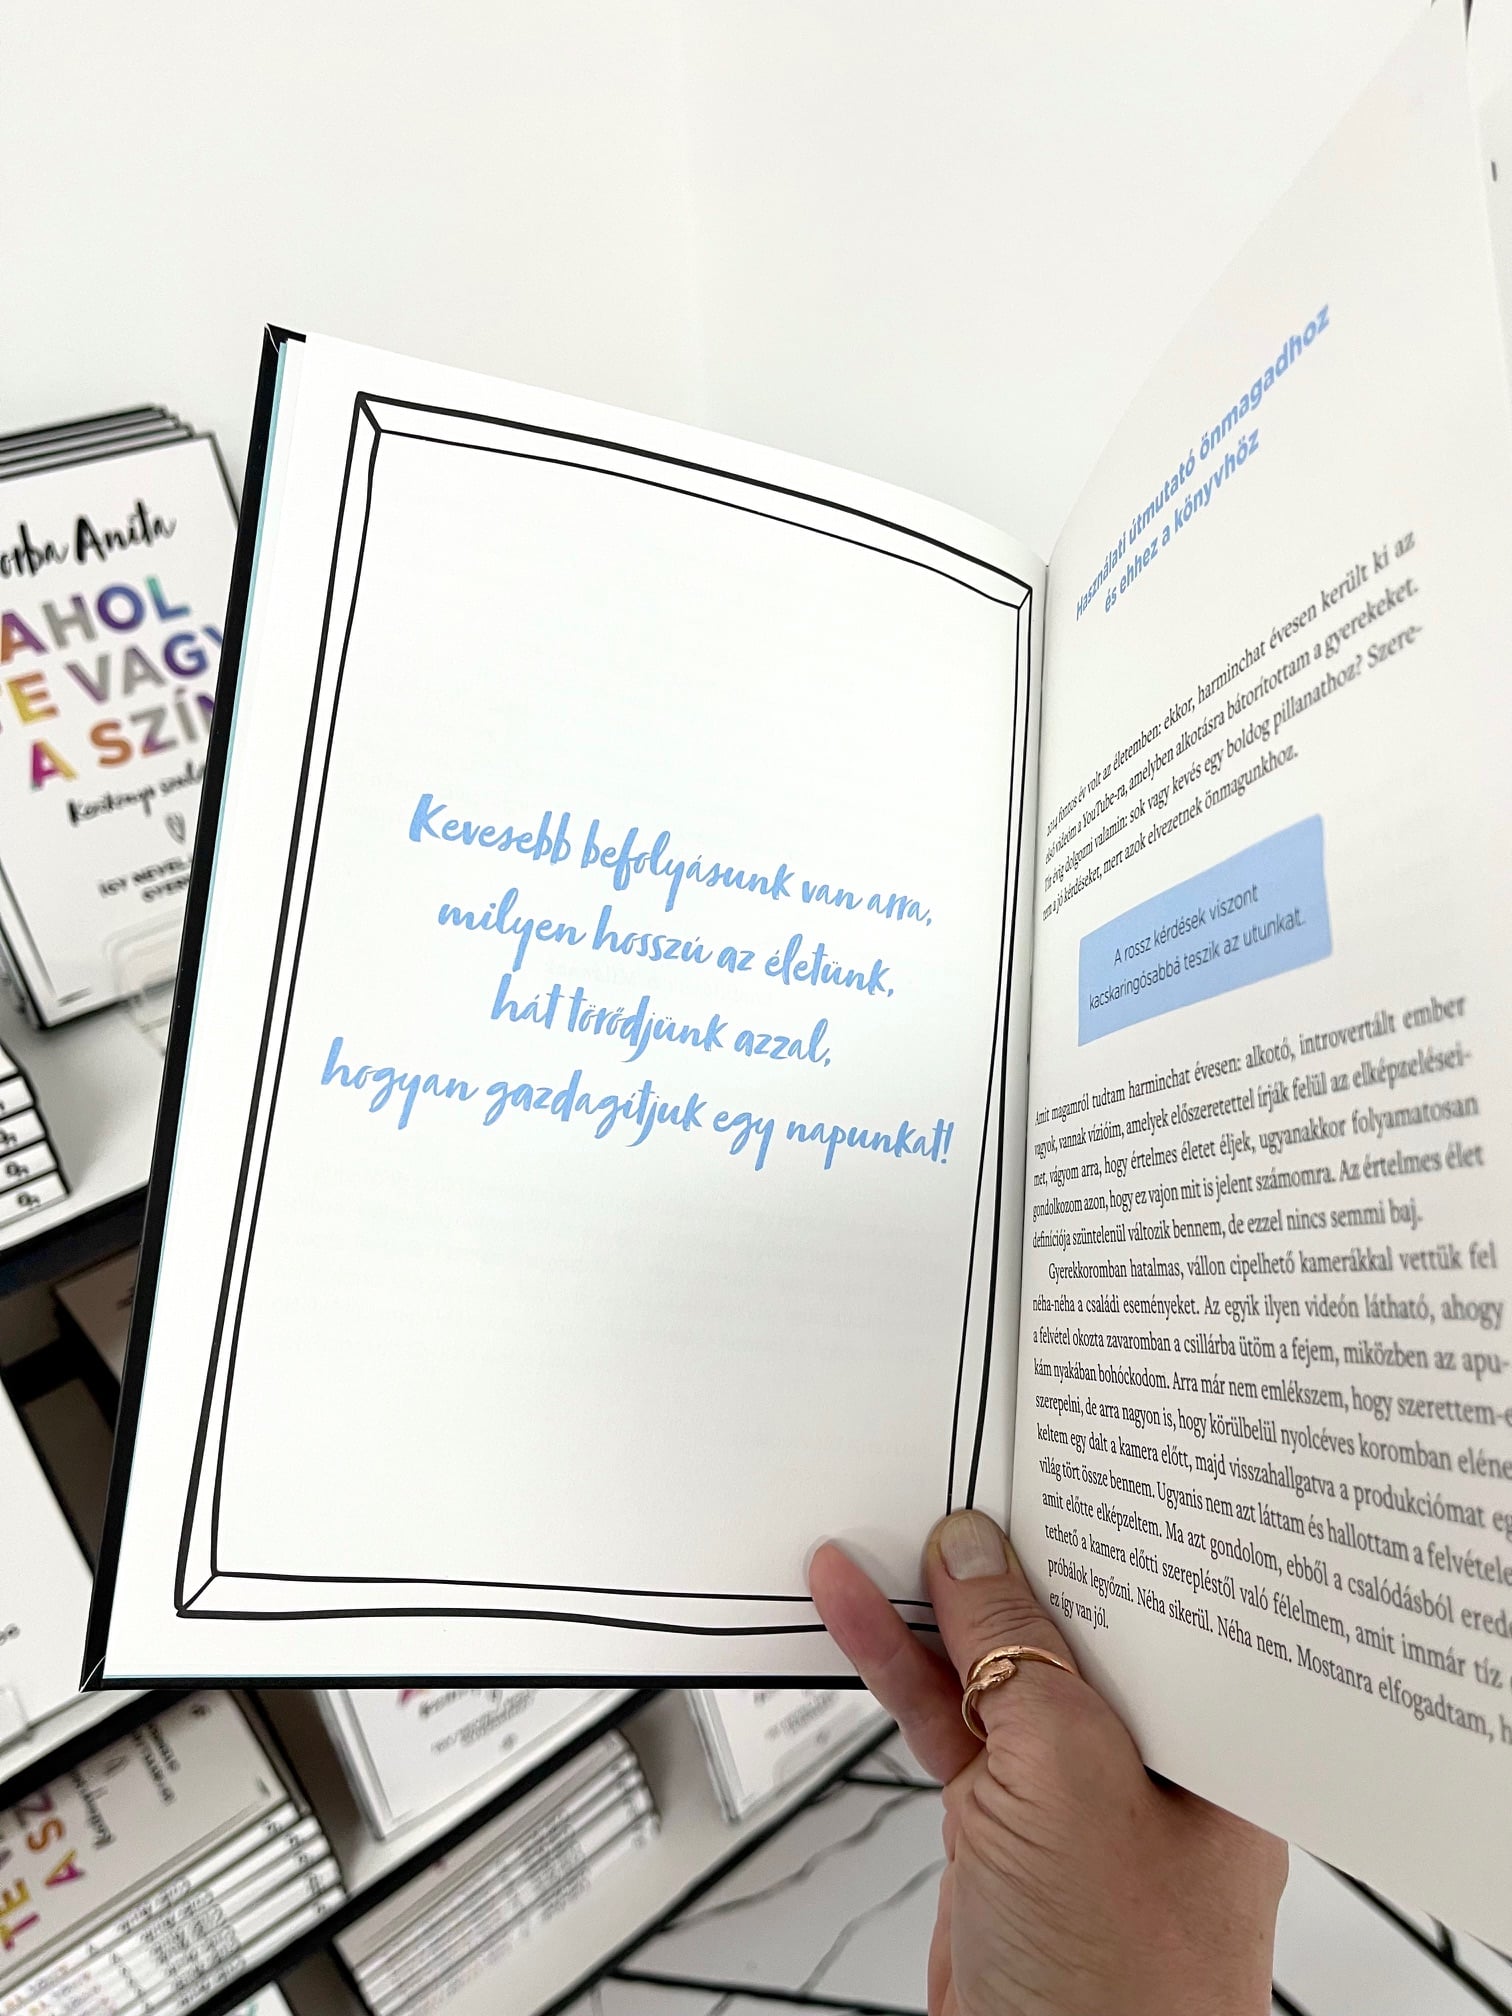 Anita
AHOL
TE VAGY
A SZÍN
Kevesebb befolyásunk van arra,
milyen hosszú az életünk,
hát törődjünk azzal,
hogyan gazdagítjuk egy napunkat!
Használati útmutató önmagadhoz
és ehhez a könyvhöz
2014 fontos év volt az életemben: ekkor, harminchat évesen került ki az
első videóm a YouTube-ra, amelyben alkotásra bátorítottam a gyerekeket.
Tíz évig dolgozni valamin: sok vagy kevés egy boldog pillanathoz? Szere-
tem a jó kérdéseket, mert azok elvezetnek önmagunkhoz.
A rossz kérdések viszont
kacskaringósabbá teszik az utunkat.
Amit magamról tudtam harminchat évesen: alkotó, introvertált ember
vagyok, vannak vízióim, amelyek előszeretettel írják felül az elképzelései-
met, vágyom arra, hogy értelmes életet éljek, ugyanakkor folyamatosan
gondolkozom azon, hogy ez vajon mit is jelent számomra. Az értelmes élet
definíciója szüntelenül változik bennem, de ezzel nincs semmi baj.
Gyerekkoromban hatalmas, vállon cipelhető kamerákkal vettük fel
néha-néha a családi eseményeket. Az egyik ilyen videón látható, ahogy
a felvétel okozta zavaromban a csillárba ütöm a fejem, miközben az apu-
kám nyakában bohóckodom. Arra már nem emlékszem, hogy szerettem-e
szerepelni, de arra nagyon is, hogy körülbelül nyolcéves koromban eléne
keltem egy dalt a kamera előtt, majd visszahallgatva a produkciómat eg
világ tört össze bennem. Ugyanis nem azt láttam és hallottam a felvétele
amit előtte elképzeltem. Ma azt gondolom, ebből a csalódásból erede
tethető a kamera előtti szerepléstől való félelmem, amit immár tíz
próbálok legyőzni. Néha sikerül. Néha nem. Mostanra elfogadtam, h
ez így van jól.